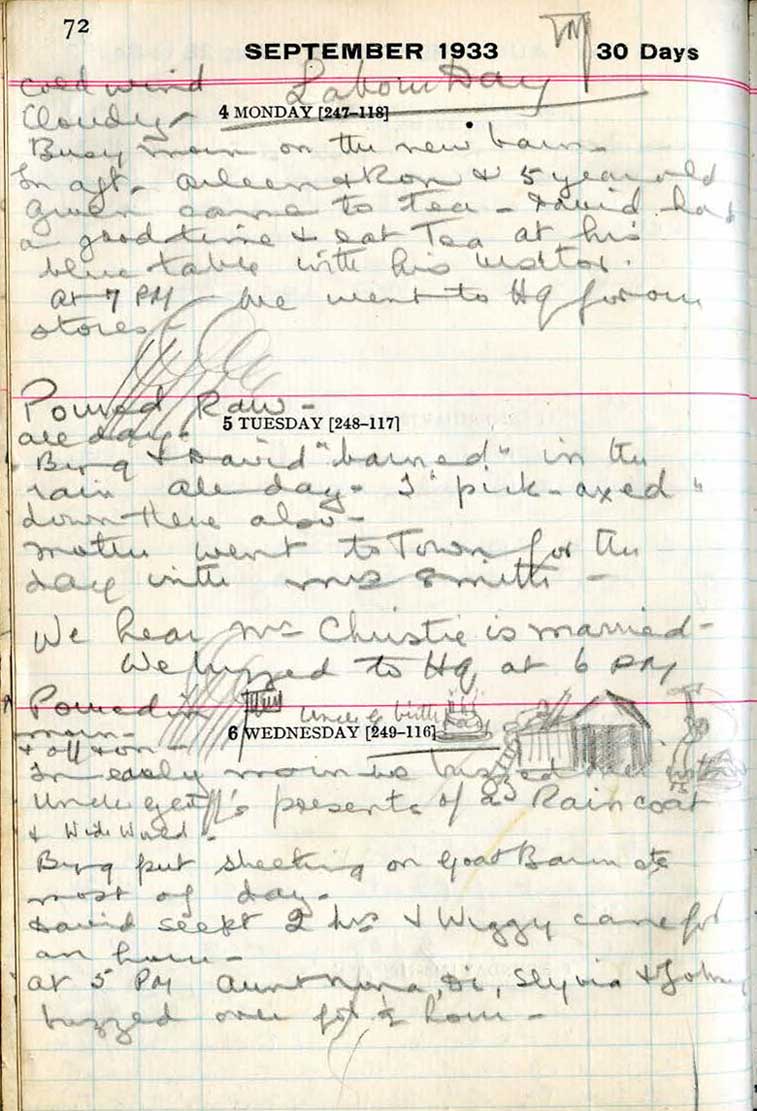 72
SEPTEMBER 1933
30 Days
cold wind
Labour Day
Cloudy -
4 MONDAY [247-118]
Busy morn on the new barn -
In aft. Aileen & Ron & 5 year old
Gwen came to Tea - David had
a good time & eat Tea at his
blue table with his visitor.
at 7 PM - We went to HQ for our
stores -
Poured Rain -
all day -
5 TUESDAY [248-117]
& David "barned" in the
rain all day - I "pick-axed"
down there also -
Mother went to Town for the
day with Mrs Smith -
We hear Mr Christie is married -
We buzzed to HQ at 6 PM
Poured in
morn -
& off & on -
Uncle G birth
6 WEDNESDAY [249-116]
In early morn we buzzed over
Uncle presents of a Raincoat
& Wide World.
put sheeting on Goat Barn etc
most of day.
David slept 2 hrs & Wiggy came for
an hour -
at 5 PM Aunt Nona, Di, Slyvia & John
buzzed over for ½ hour -